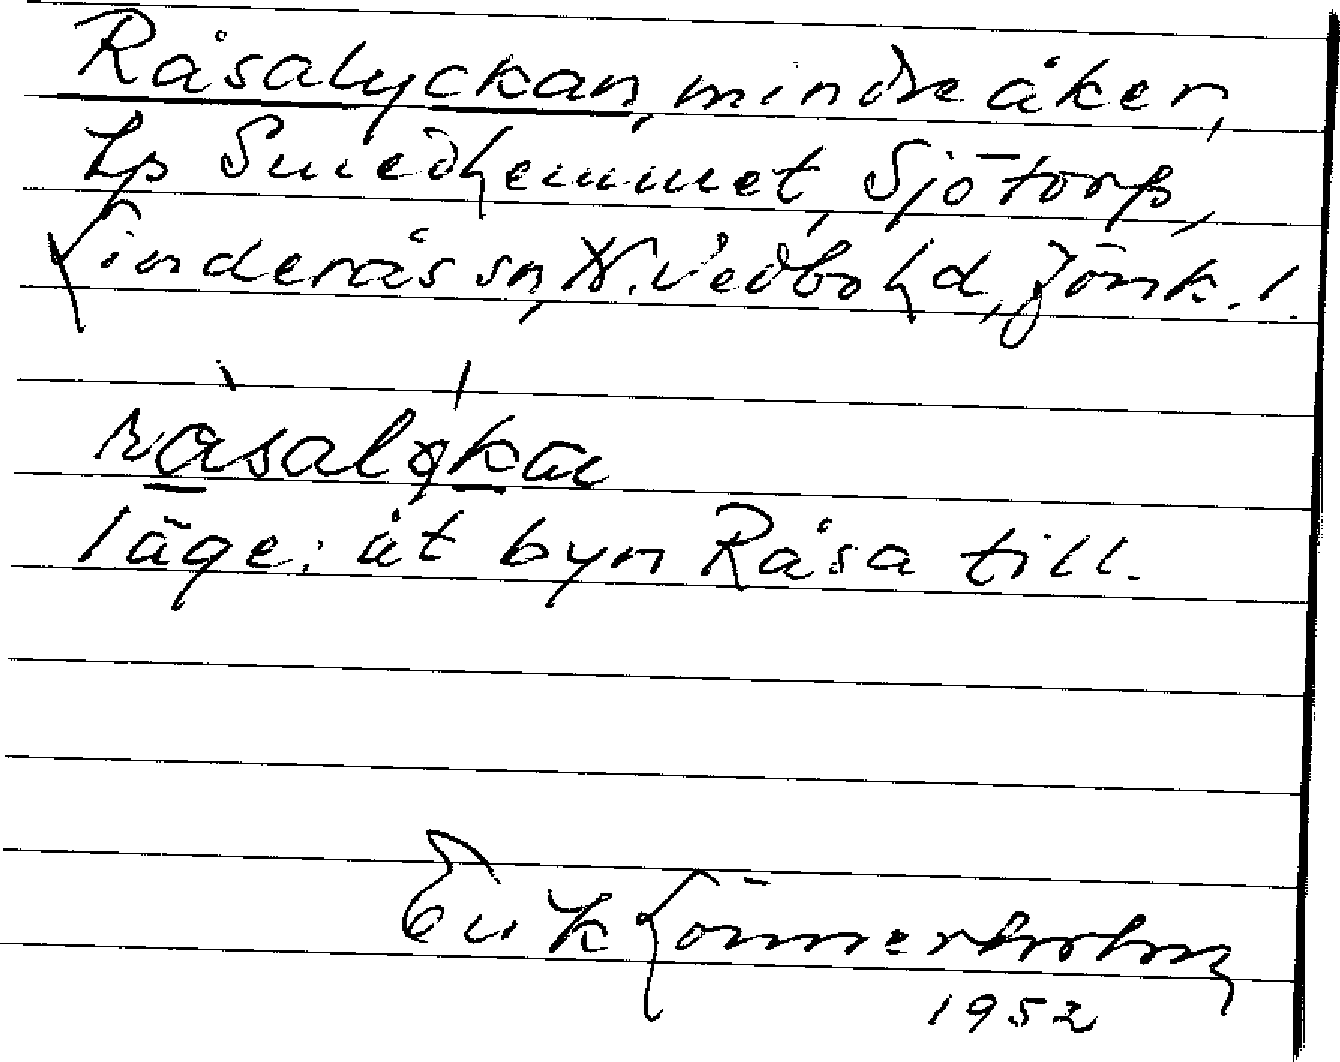 Råsalyckan, mindre åker,
Lp Smedhemmet, Sjötorp,
Linderås sn, N. Vedbo hd, Jönk. l.
råsalykan
läge: åt byn Råsa till.
Erik Lönnerholm
1952